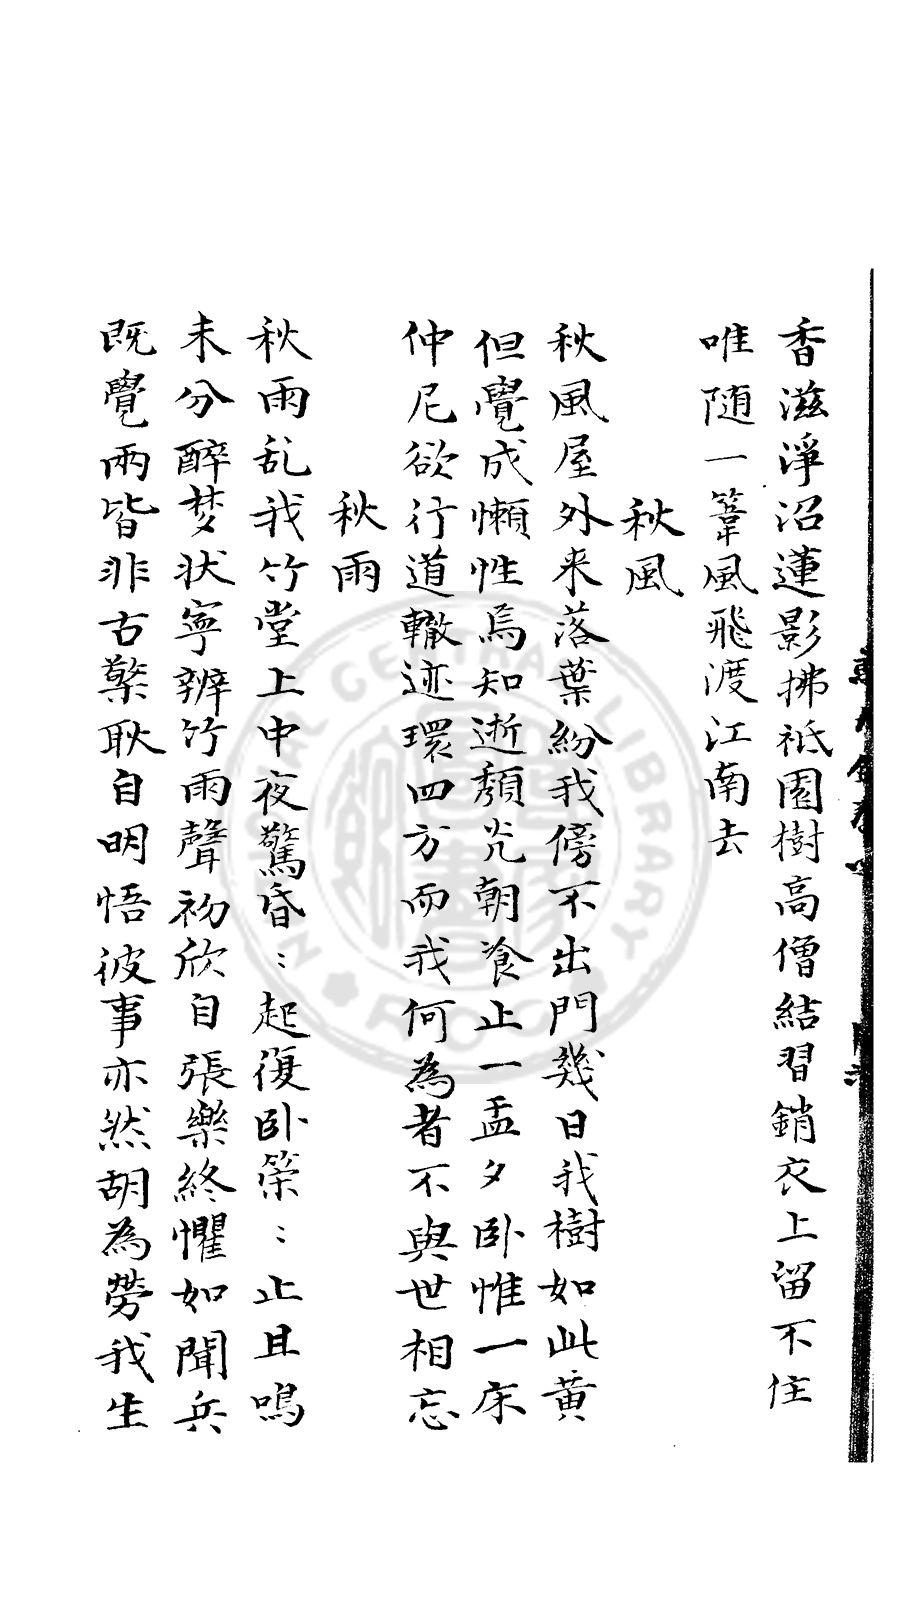 香滋淨沼蓮影拂祇園樹高僧結習銷衣上留不住
唯随一葦風飛渡江南去
秋風
秋風屋外来落葉紛我傍不出門幾日我樹如此黄
但覺成懶性焉知逝頽光朝飡止一盂夕卧惟一床
仲尼欲行道轍迹環四方而我何為者不與世相忘
秋雨
秋雨乱我竹堂上中夜驚昏：起復卧策：止且鳴
未分醉梦状寧辨竹雨聲初欣自張樂終懼如聞兵
既覺兩皆非古檠耿自明悟彼事亦然胡為勞我生
NATIONAL CENTRAL LIBRARY